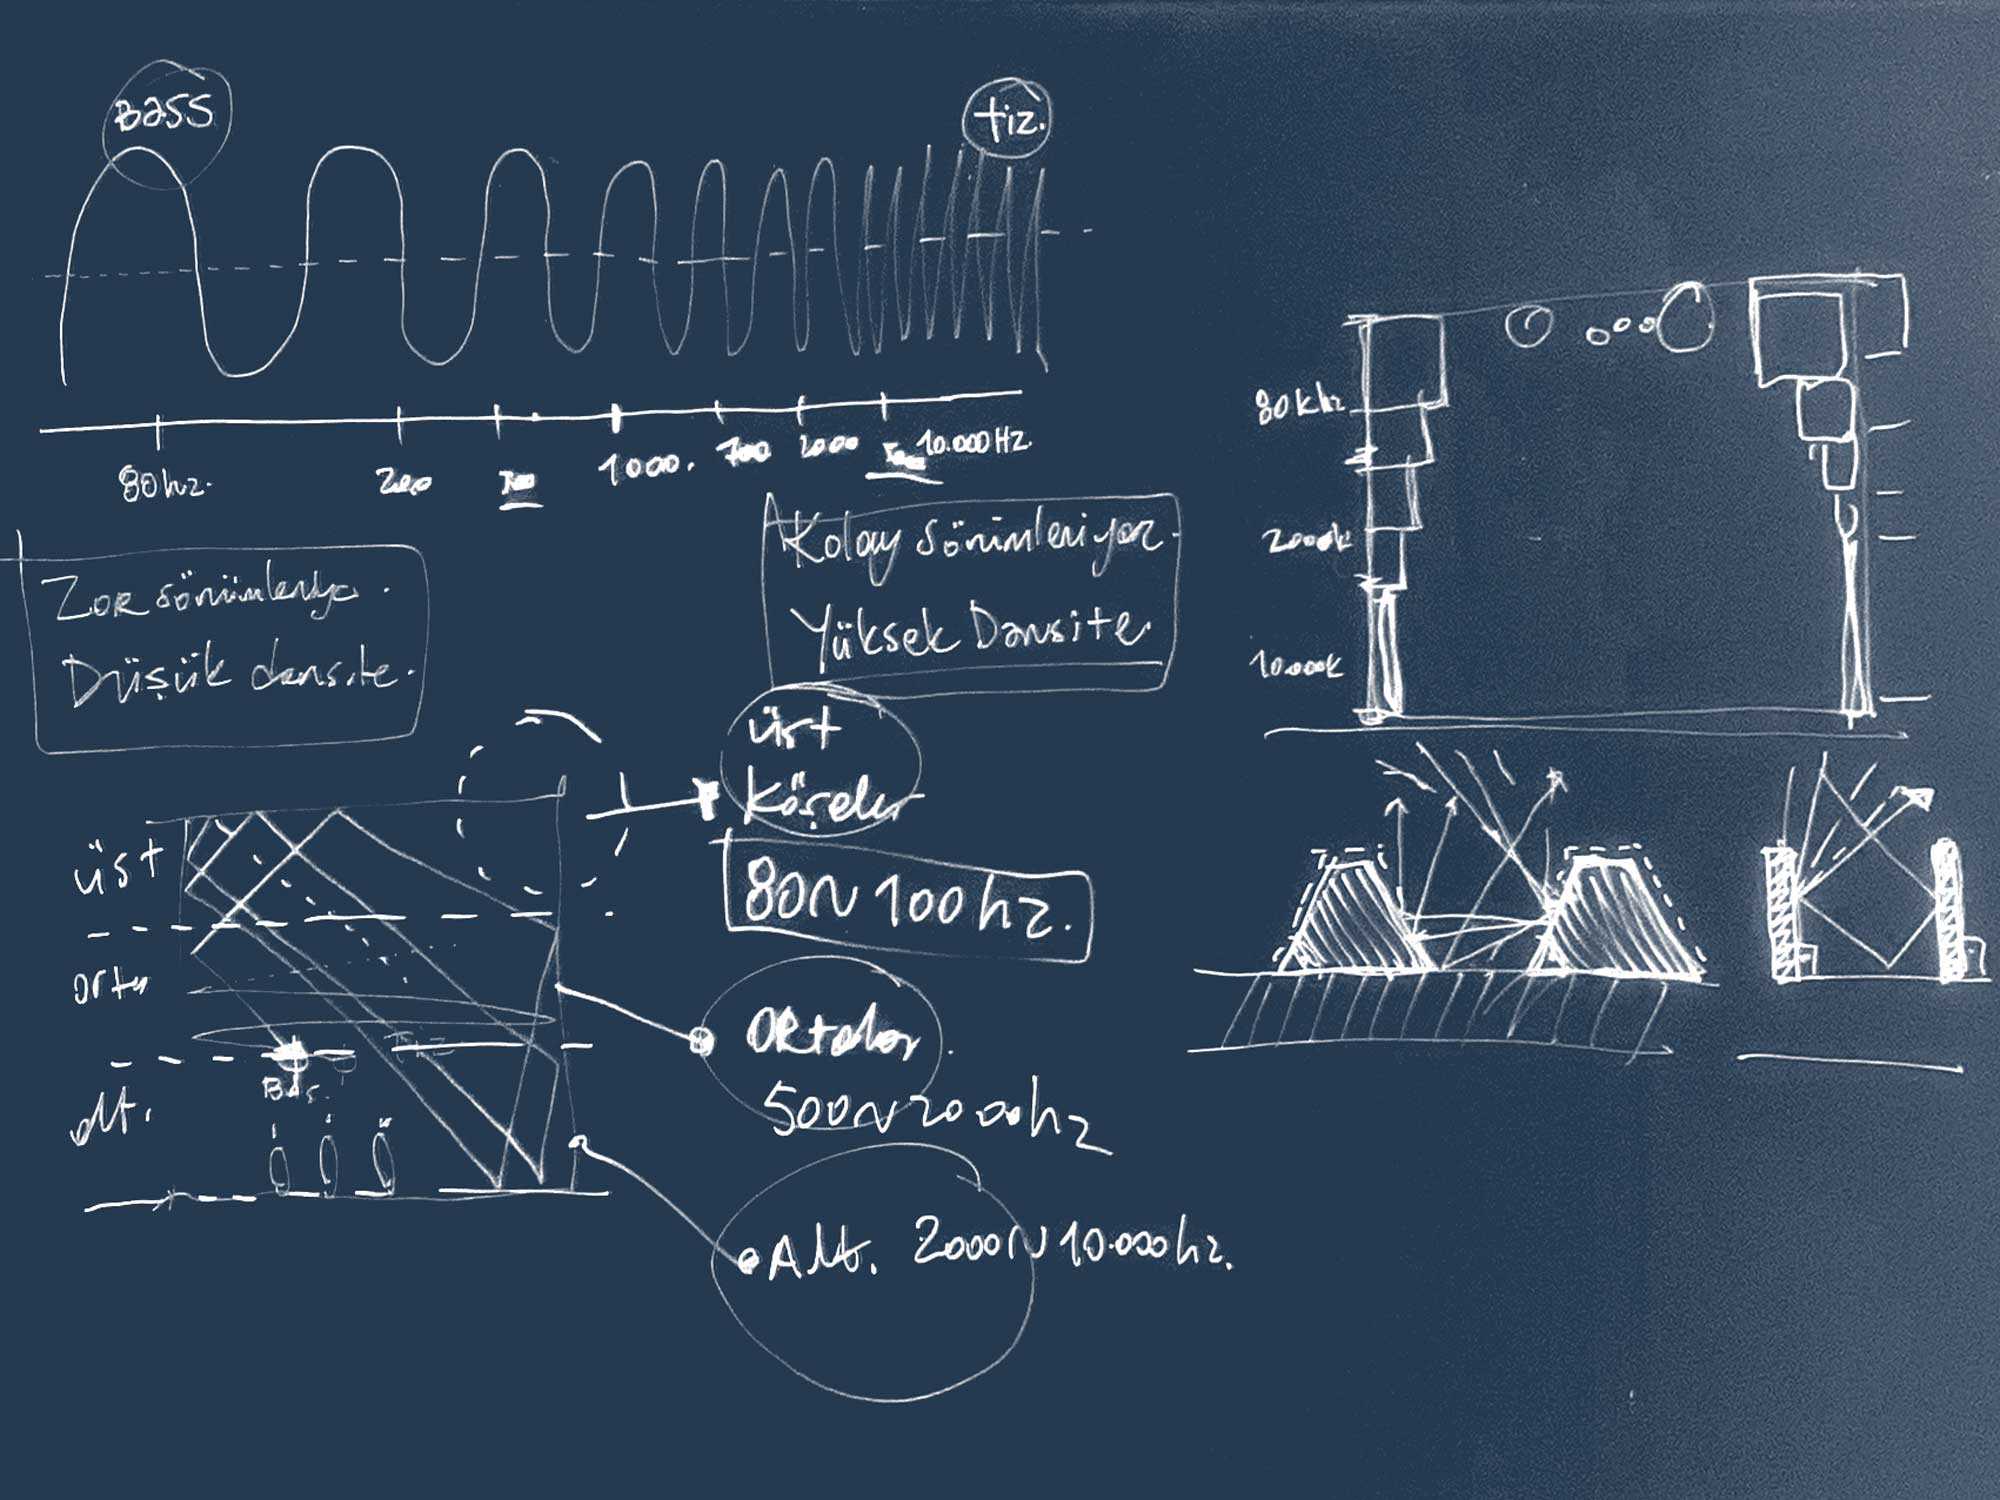 Bass
tiz.
80 hz.
200
1000.
700
2000
10.000 Hz.
Zor sönümleniyo.
Düşük dansite.
Kolay sönümleniyor.
Yüksek Dansite
üst
Köşeler
80 ~ 100 hz.
üst
orta
alt.
Bas.
Tiz
Oktalar.
500 ~ 2000 hz
Alt. 2000 ~ 10.000 hz.
80 khz
2000k
10.000k